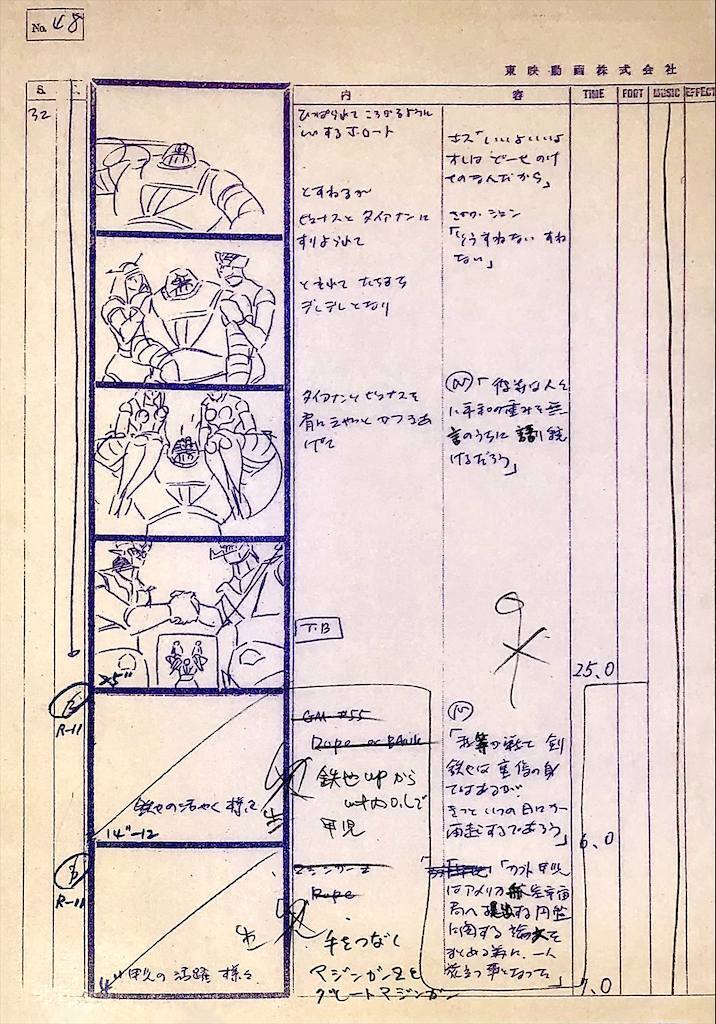 No. 48
東映動画株式会社
S. 内 容 TIME FOOT MUSIC EFFECT
32
ひっぱられて ころがるように
するボロート
ボス「いいよいいよ
オレは どーせ のけ
ものなんだから」
とすねるが
さやか・ジュン
ビューナスと ダイアナンに
「そうすねない すね
すりよられて
ない」
デレデレとなり
ダイアナンとビューナスを
肩に かつぎあ
げて
(N)「彼等は人々
に平和の重みを無
言のうちに 語り続
けるだろう」
T.B
25"
25.0
B
R-11
鉄也の活やく 様々
14"-12
鉄也upから
甲児
(N)
「剣
鉄也は重傷の身
ではあるが
きっと いつの日にか
再起するであろう」
6.0
B
R-11
甲児の活躍 様々
Rope
手をつなぐ
マジンガーZと
グレートマジンガー
「カブト甲児
はアメリカ 航空宇宙
局へ 提出する円盤
に関する 論文を
まとめる為に、一人
旅立つ事となった」
7.0